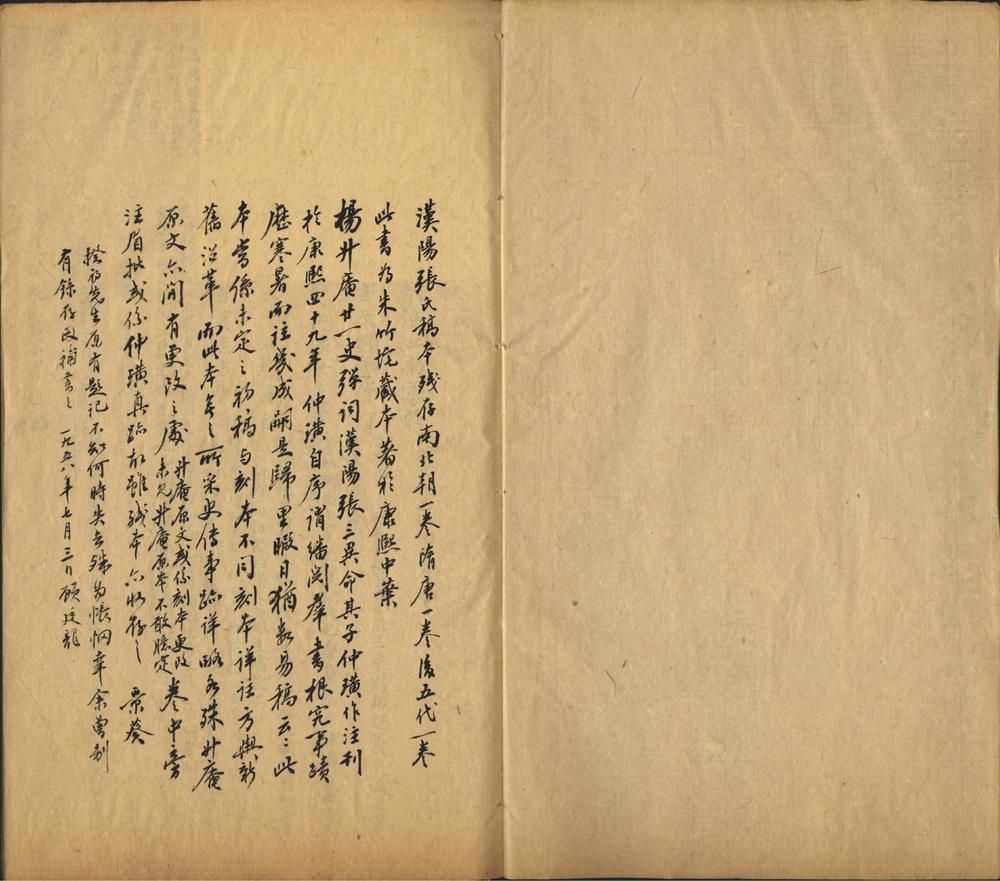 漢陽張氏稿本殘存南北朝一卷隋唐一卷後五代一卷
此書為朱竹垞藏本著於康熙中葉
楊升庵廿一史彈詞漢陽張三異命其子仲璜作注刊
於康熙四十九年仲璜自序謂繙閱羣書根究事蹟
歷寒暑而注幾成嗣是歸里暇日猶數易稿云云此
本當係未定之初稿與刻本不同刻本詳注方輿新
舊沿革而此本無之所采史傳事跡詳略各殊升庵
原文亦間有更改之處
升庵原文或係刻本更改
未見升庵原本不敢臆定
卷中旁
注眉批或係仲璜真跡故雖殘本亦收存之 景葵
揆初先生原有題記不知何時失去殊為悵惘幸余曾别
有錄存因補書之 一九五八年七月三日顧廷龍